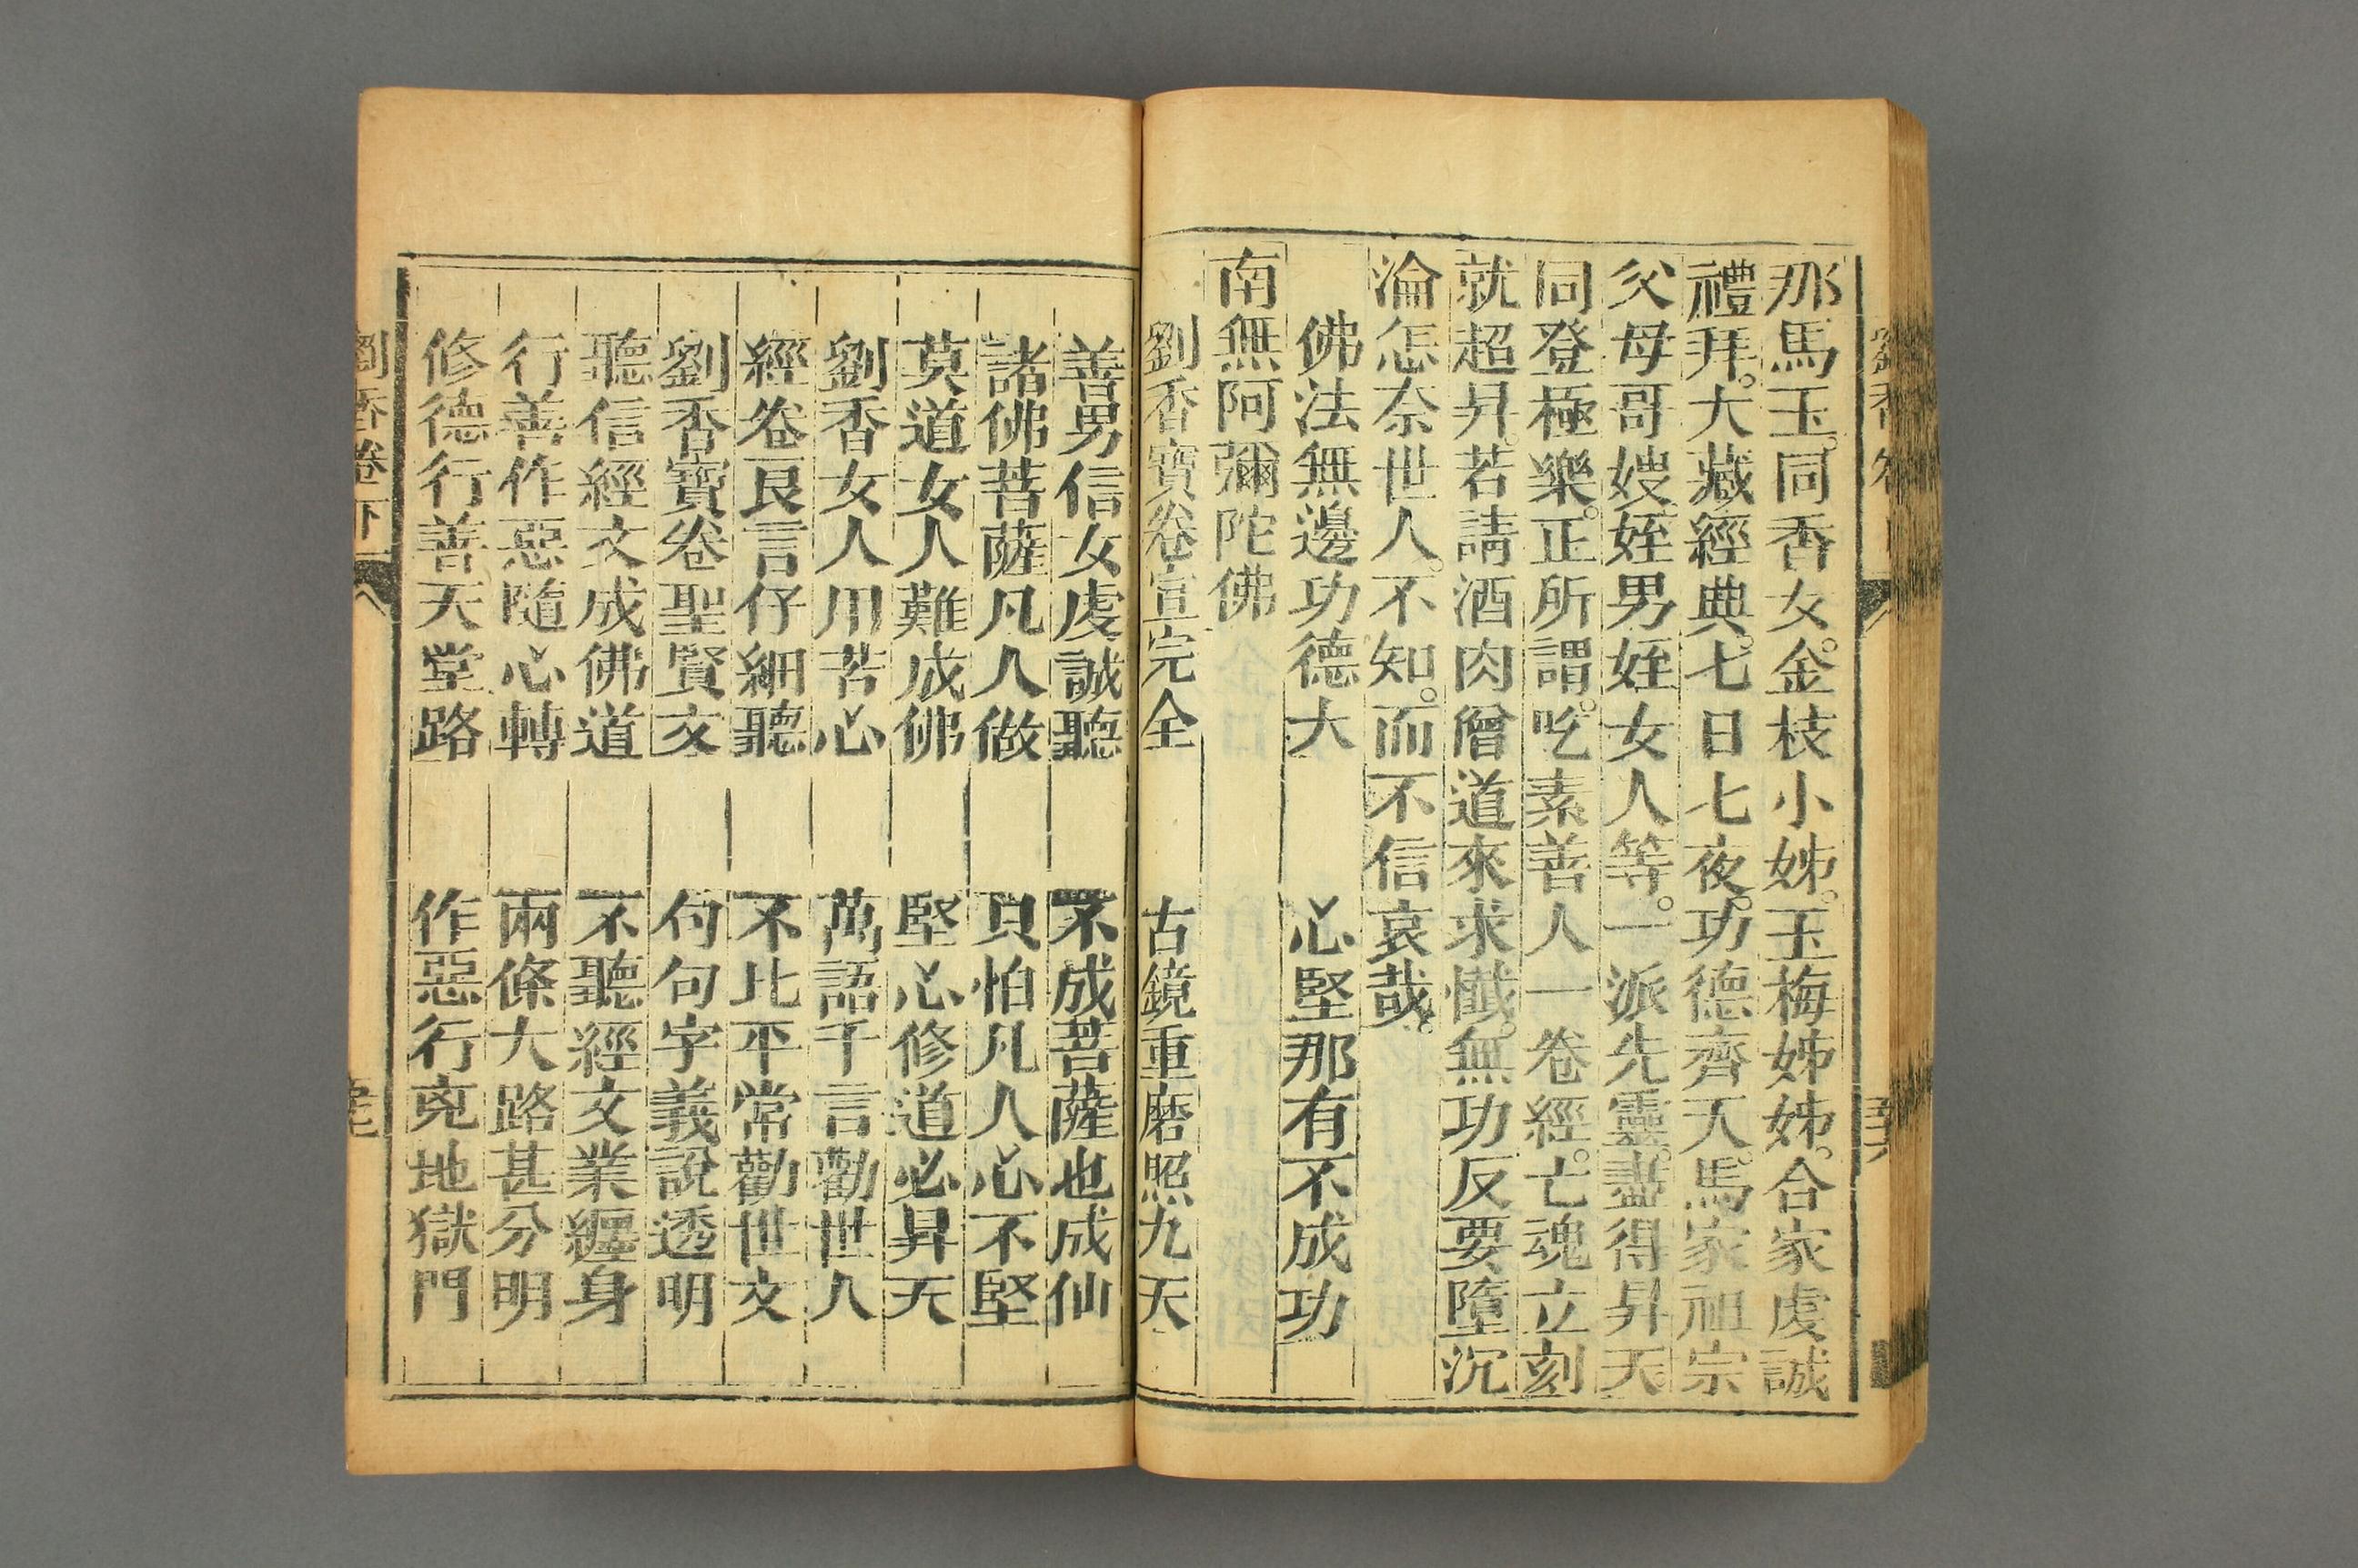 那馬玉。同香女。金枝小姊。玉梅姊姊。合家虔誠
禮拜。大藏經典。七日七夜。功德齊天。馬家祖宗
父母哥嫂。姪男姪女人等。一派先靈。盡得昇天。
同登極樂。正所謂。吃素善人一卷經。亡魂立刻
就超昇。若請酒肉僧道來求懺。無功反要墮沉
淪怎奈世人。不知。而不信哀哉。
佛法無邊功德大　心堅那有不成功
南無阿彌陀佛
劉香寶卷宣完全　古鏡重磨照九天
善男信女虔誠聽　不成菩薩也成仙
諸佛菩薩凡人做　只怕凡人心不堅
莫道女人難成佛　堅心修道必昇天
劉香女人用苦心　萬語千言勸世人
經卷良言仔細聽　不比平常勸世文
劉香寶卷聖賢文　句句字義說透明
聽信經文成佛道　不聽經文業纒身
行善作惡隨心轉　兩條大路甚分明
修德行善天堂路　作惡行兇地獄門
劉香卷下